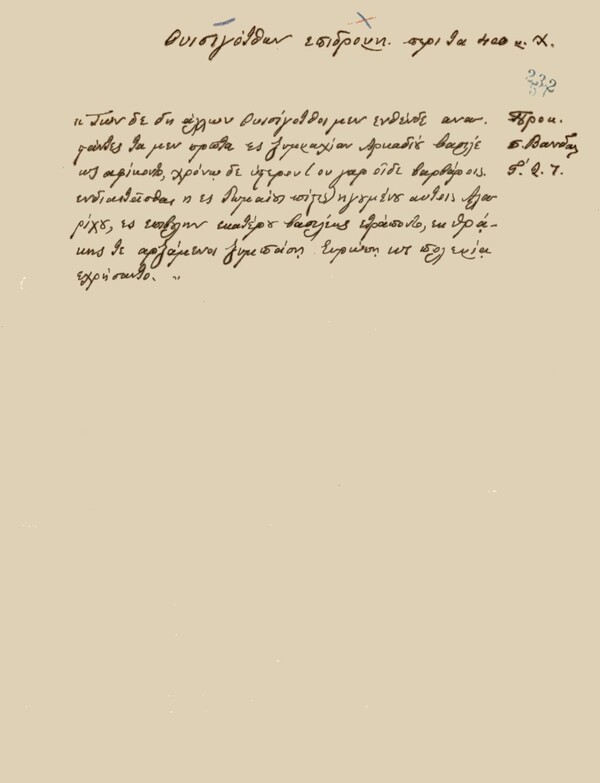 Ουισιγότθων επιδρομη. περι τα 400 μ. Χ.
232
57
« Των δε δη άλλων Ουισίγοτθοι μεν ενθένδε ανα-
στάντες τα μεν πρωτα ες ξυμμαχίαν Αρκαδίῳ βασιλε
ως αφίκοντο, χρόνῳ δε ύστερον (ου γαρ οίδε βαρβάροις
ενδιαιτασθαι η ες Ρωμαίους πίστις) ηγουμένου αυτοις Αλα
ρίχου, ες επιβουλην εκατέρου βασιλέως ετράποντο, εκ Θρᾴ-
κης τε αρξάμενοι ξυμπάσῃ Ευρώπῃ ως πολεμίᾳ
εχρήσαντο. »
Προκ.
π. Βανδαλ
Γ. 2. 7.